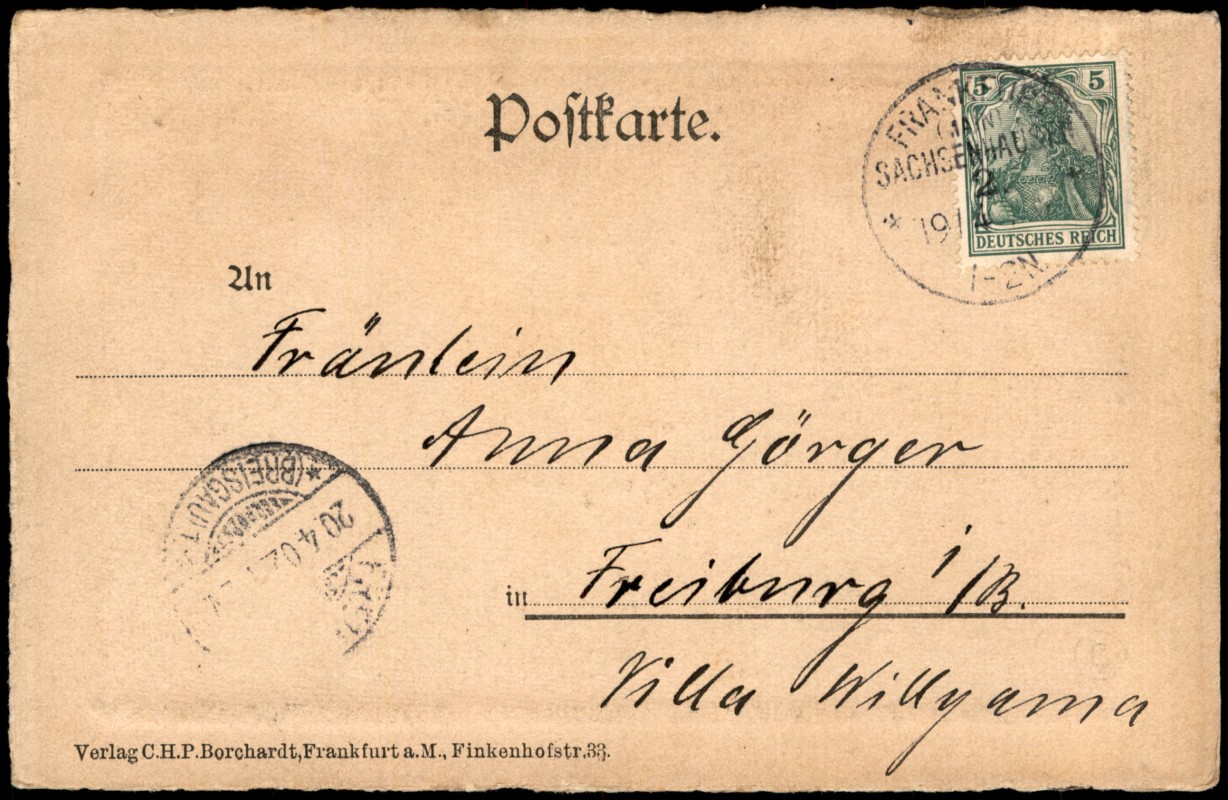 Postkarte.
5 5
(MAIN)
SACHSENHAUSEN
2
19/4
1-2N.
DEUTSCHES REICH
An
Fräulein
Anna Görger
(BREISGAU)
20.4.02.
in Freiburg i/B.
Villa Willyama
Verlag C.H.P.Borchardt, Frankfurt a.M., Finkenhofstr. 33.